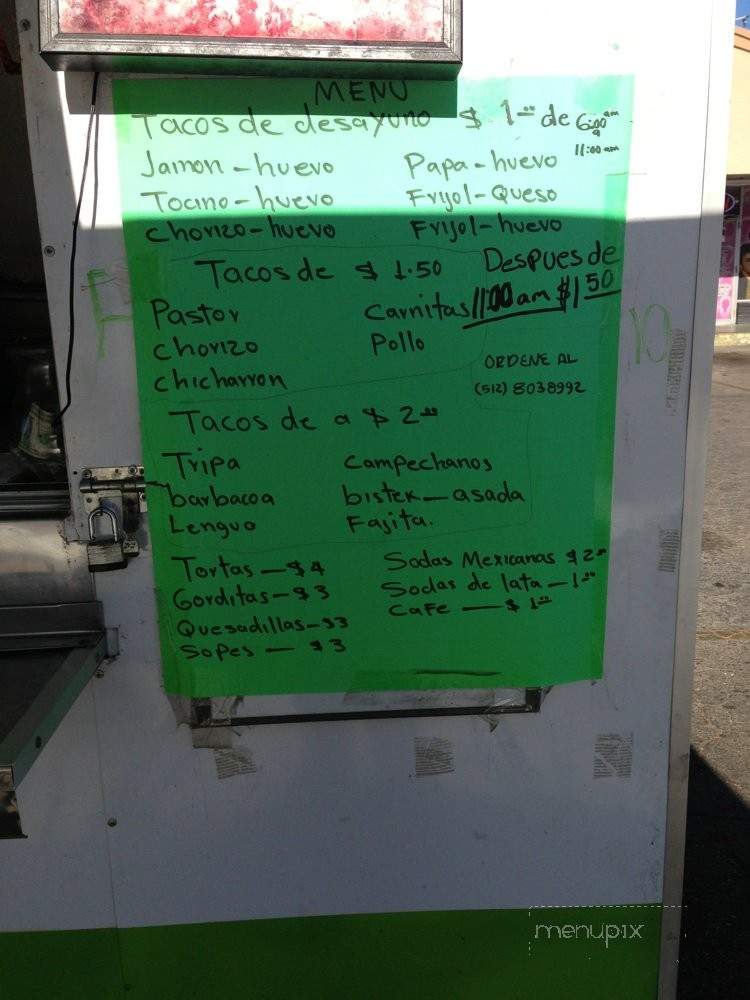 MENU
Tacos de desayuno $ 1.00 de 6:00 am
a
11:00 am
Jamon - huevo Papa - huevo
Tocino - huevo Frijol - Queso
Chorizo - huevo Frijol - huevo
Despues de
11:00 am $1 50
Tacos de $ 1.50
Pastor Carnitas
Chorizo Pollo
Chicharron
ORDENE AL
(512) 8038992
Tacos de a $ 2.00
Tripa Campechanos
barbacoa bistek - asada
Lengua Fajita.
Tortas - $4 Sodas Mexicanas $ 2.00
Gorditas - $3 Sodas de lata - 1.00
Quesadillas - $3 Cafe - $ 1.00
Sopes - $3
10
menupix